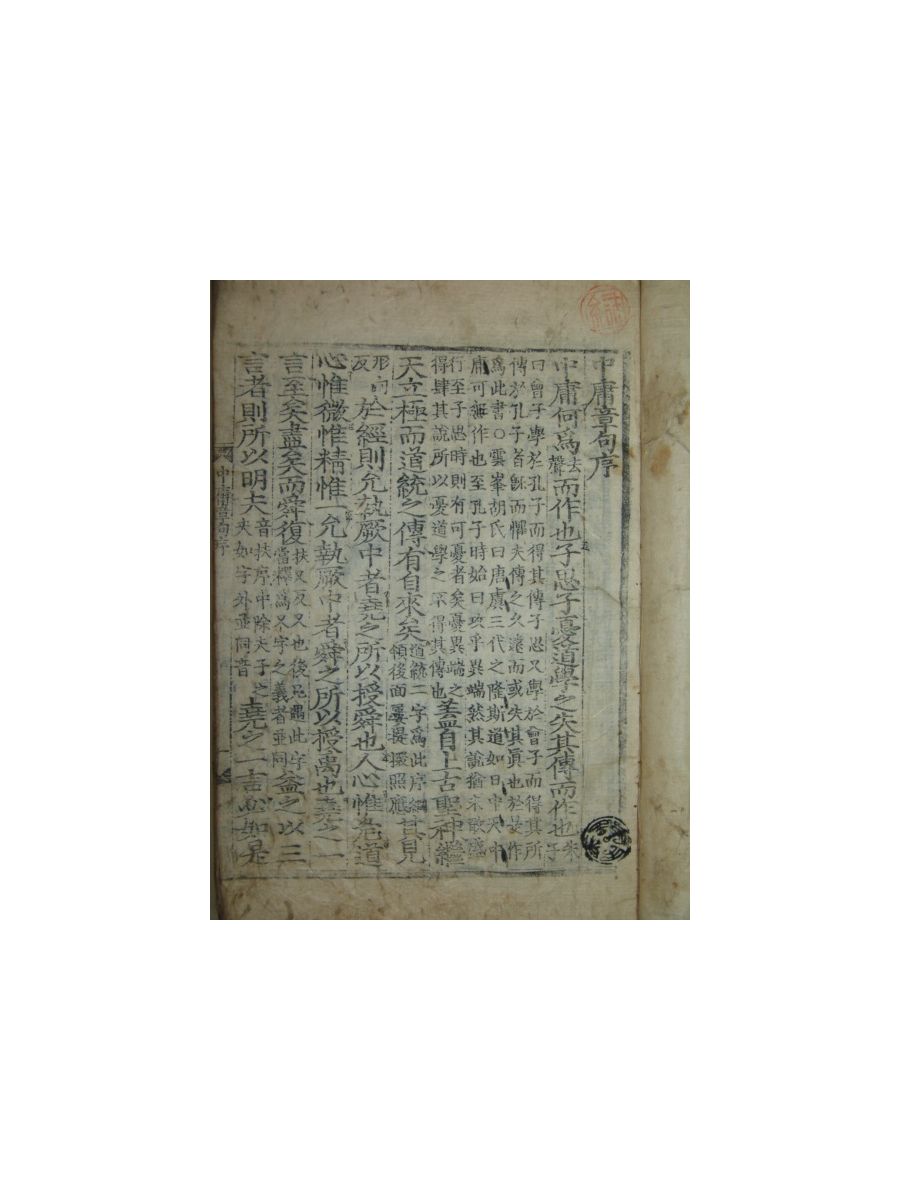 中庸章句序
中庸何爲去聲而作也子思子憂道學之失其傳而作也朱子
曰曾子學於孔子而得其傳子思又學於曾子而得其所
傳於孔子者旣而懼夫傳之久遠而或失其眞也於是作
爲此書○雲峯胡氏曰唐虞三代之隆斯道如日中天中
庸可無作也至孔子時始曰攻乎異端然其說猶未敢盛
行至子思時則有可憂者矣憂異端之
得肆其說所以憂道學之不得其傳也
蓋自上古聖神繼
天立極而道統之傳有自來矣道統二字爲此序綱領後面屢提掇照應其見
形甸反於經則允執厥中者堯之所以授舜也人心惟危道
心惟微惟精惟一允執厥中者舜之所以授禹也堯之一
言至矣盡矣而舜復扶又反又也後凡遇此字當釋爲又字之義者並同益之以三
言者則所以明夫音扶序中除夫子之夫如字外並同音堯之一言必如是
中庸章句序
一